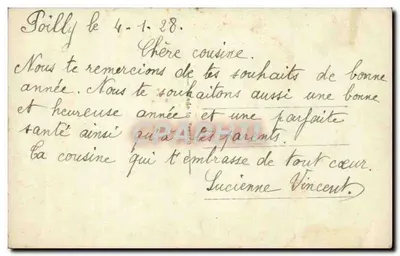 Poilly le 4-1.28.
Chère cousine.
Nous te remercions de tes souhaits de bonne
année. Nous te souhaitons aussi une bonne
et heureuse année et une parfaite
santé ainsi qu'à tes parents.
Ta cousine qui t'embrasse de tout cœur.
Lucienne Vincent.